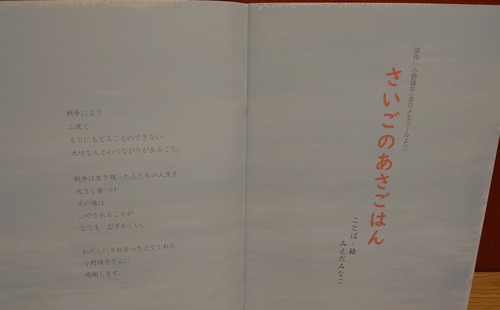 戦争により
二度と
もとにもどることのできない
大切な人とのつながりがあること。
戦争は生き残った人たちの人生を
大きく傷つけ
その傷は
いやされることが
とても むずかしい。
わたしにそれをつたえてくれた
小野瑛子さんに
感謝します。
さいごのあさごはん
ことば・絵
みえだみなこ